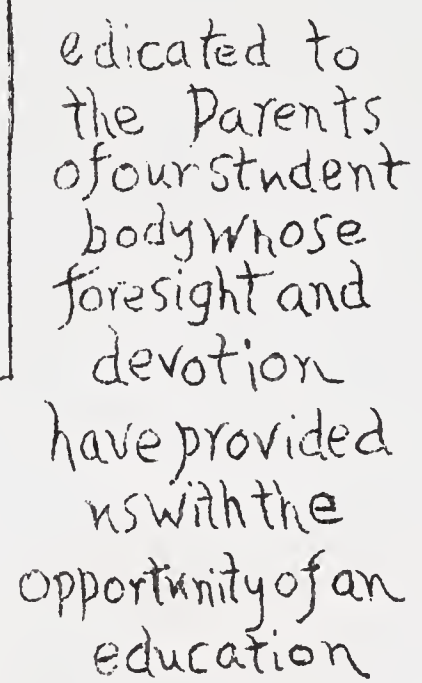 edicated to
the Parents
of our student
body whose
foresight and
devotion
have provided
us with the
opportunity of an
education